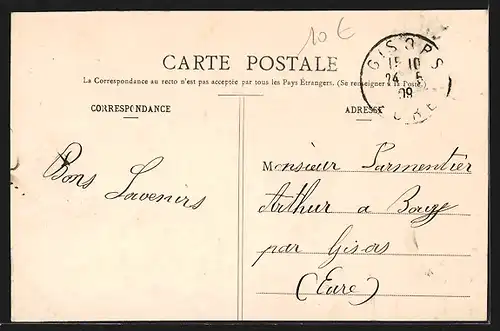 10 €
CARTE POSTALE
La Correspondance au recto n'est pas acceptée par tous les Pays Étrangers. (Se renseigner à la Poste)
CORRESPONDANCE
ADRESSE
GISORS
15 10
24 5
09
EURE
Bons Souvenirs
Monsieur Parmentier
Arthur a
par Gisors
(Eure)